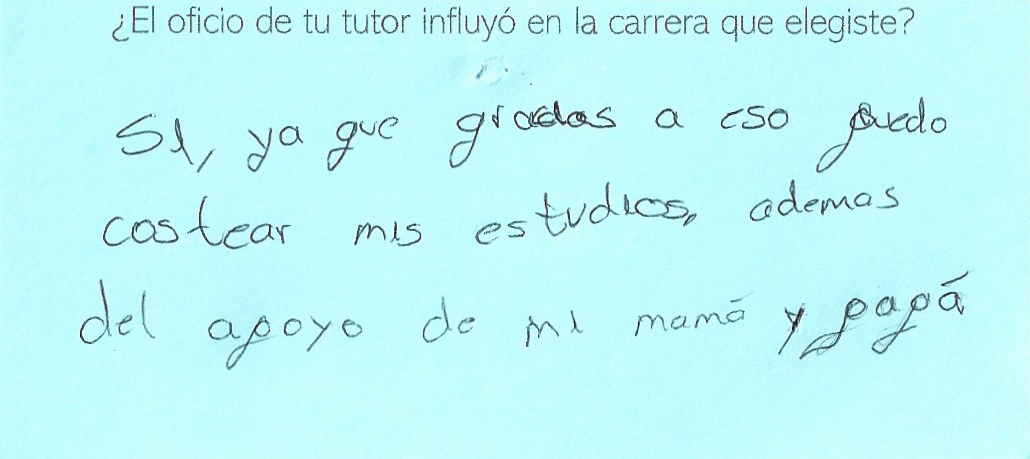 ¿El oficio de tu tutor influyó en la carrera que elegiste?
SI, ya que gracias a eso puedo
costear mis estudios, ademas
del apoyo de mi mamá y papá